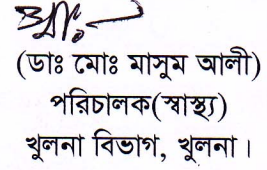 (ডাঃ মোঃ মাসুম আলী)
পরিচালক(স্বাস্থ্য)
খুলনা বিভাগ, খুলনা।